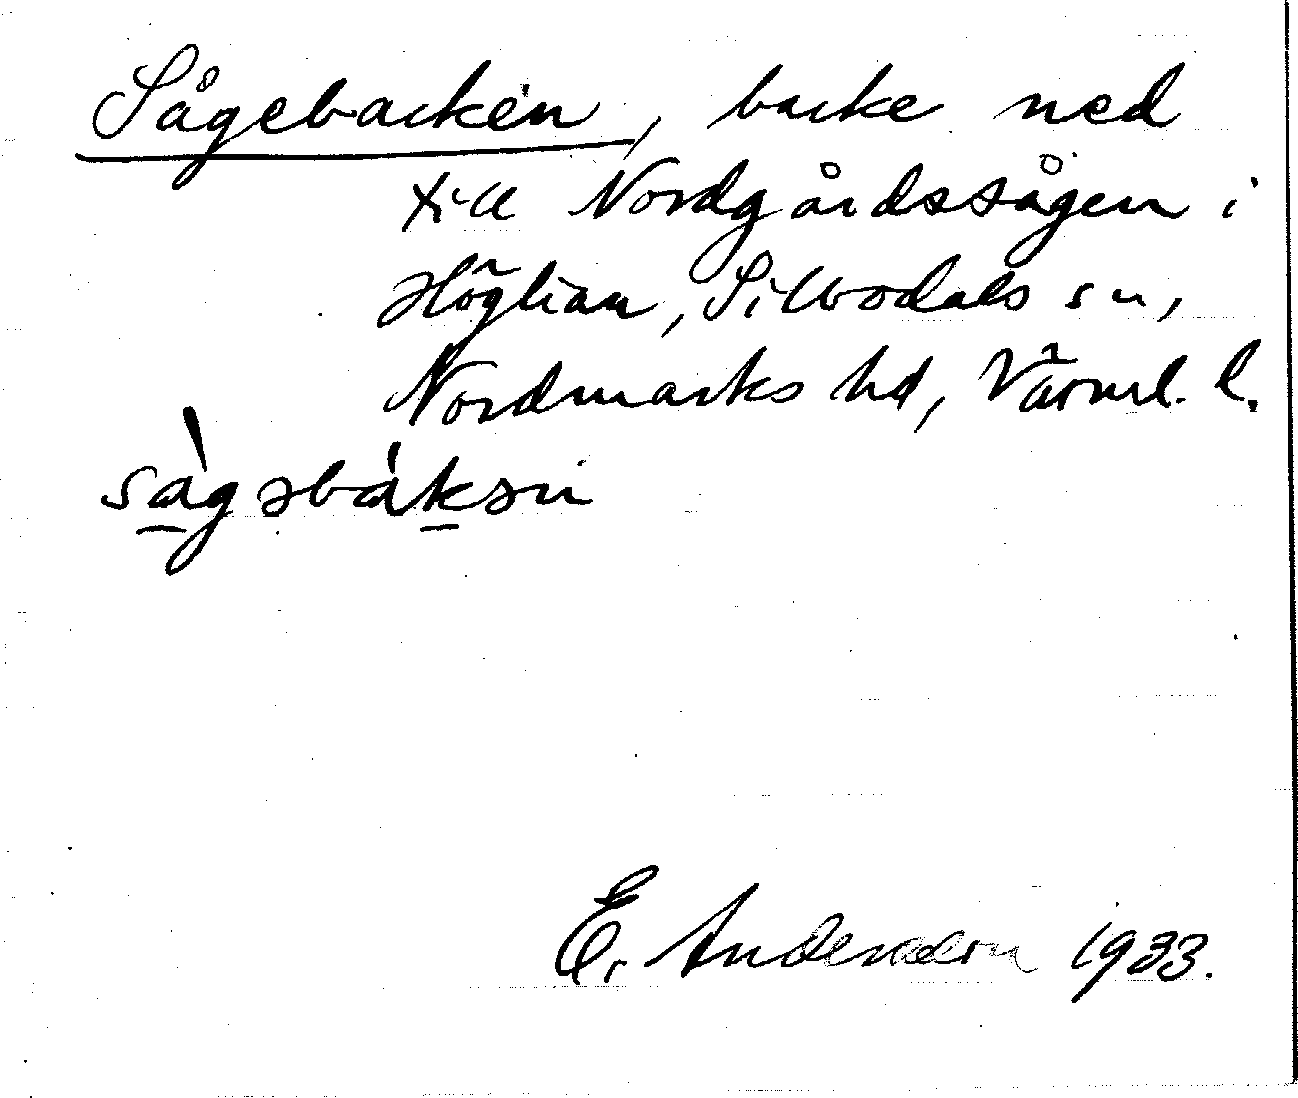 Sågebacken, backe ned
till Nordgårdssågen i
Höglian, Sillbodals sn,
Nordmarks hd, Värml. l.
sàgəbàkən
E. Andersson 1933.